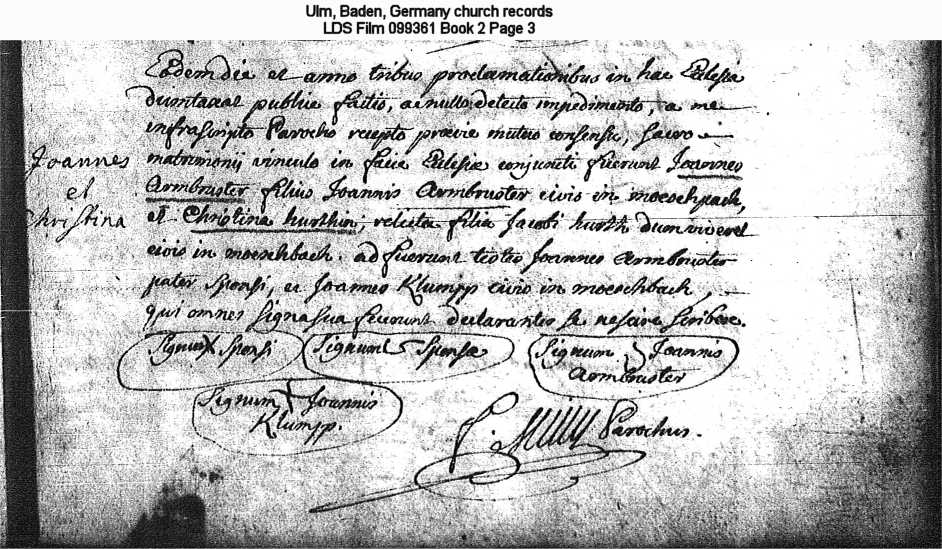 Ulm, Baden, Germany church records
LDS Film 099361 Book 2 Page 3
Eodem die et anno tribus proclamationibus in hac Eclesia
duontaxat publice factis, ac nullo detecto impedimento, a me
infrascripto Parocho recepto prævie mutuo consensu, sacro
Joannes
et
Christina
matrimonii vinculo in facie Eclesiæ conjuncti fuerunt Joannes
Armbruster filius Joannis Armbruster civis in moeschpach,
et Christina hurthin, relicta filia Jacobi hurth dum viveret
civis in moeschbach. ad fuerunt testes Joannes Armbruster
pater Sponsi, et Joannes Klumpp civis in moeschbach,
qui omnes Signa sua fecerunt declarantes se nescire scribere.
Signum Sponsi
Signum Sponsæ
Signum Joannis
Armbruster
Signum Joannis
Klumpp.
Parochus.